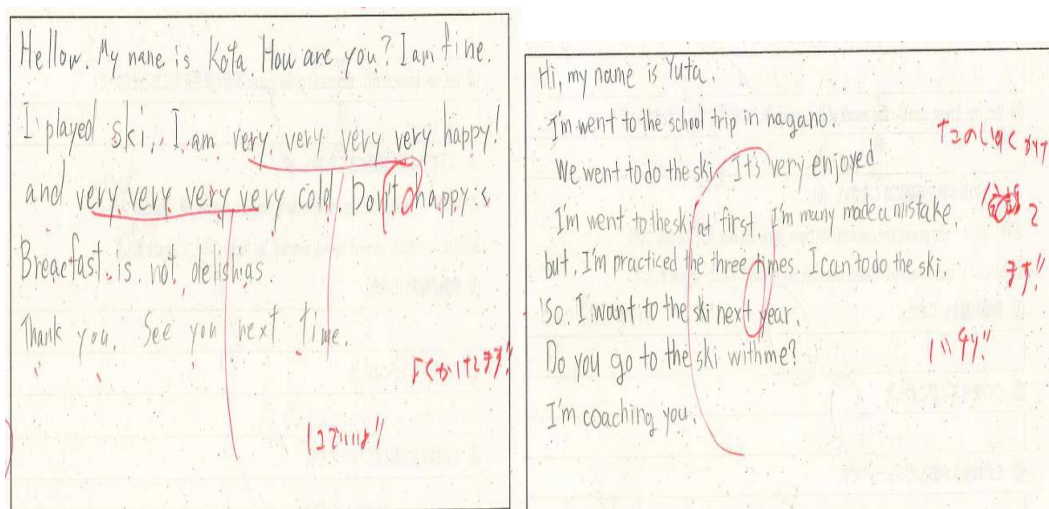 Hellow. My name is Kota. How are you? I am fine.
I played ski. I am very very very very happy!
and very very very very cold. Don't happy is
Breacfast is not delishas.
Thank you. See you next time.
よくかけてます!!
1コでいいよ!!
Hi, my name is Yuta.
I'm went to the school trip in nagano.
We went to do the ski. It's very enjoyed.
I'm went to the ski at first. I'm many made a mistake
but. I'm practiced the three times. I can to do the ski.
So. I want to the ski next year.
Do you go to the ski with me?
I'm coaching you.
たのしめ
ます!!